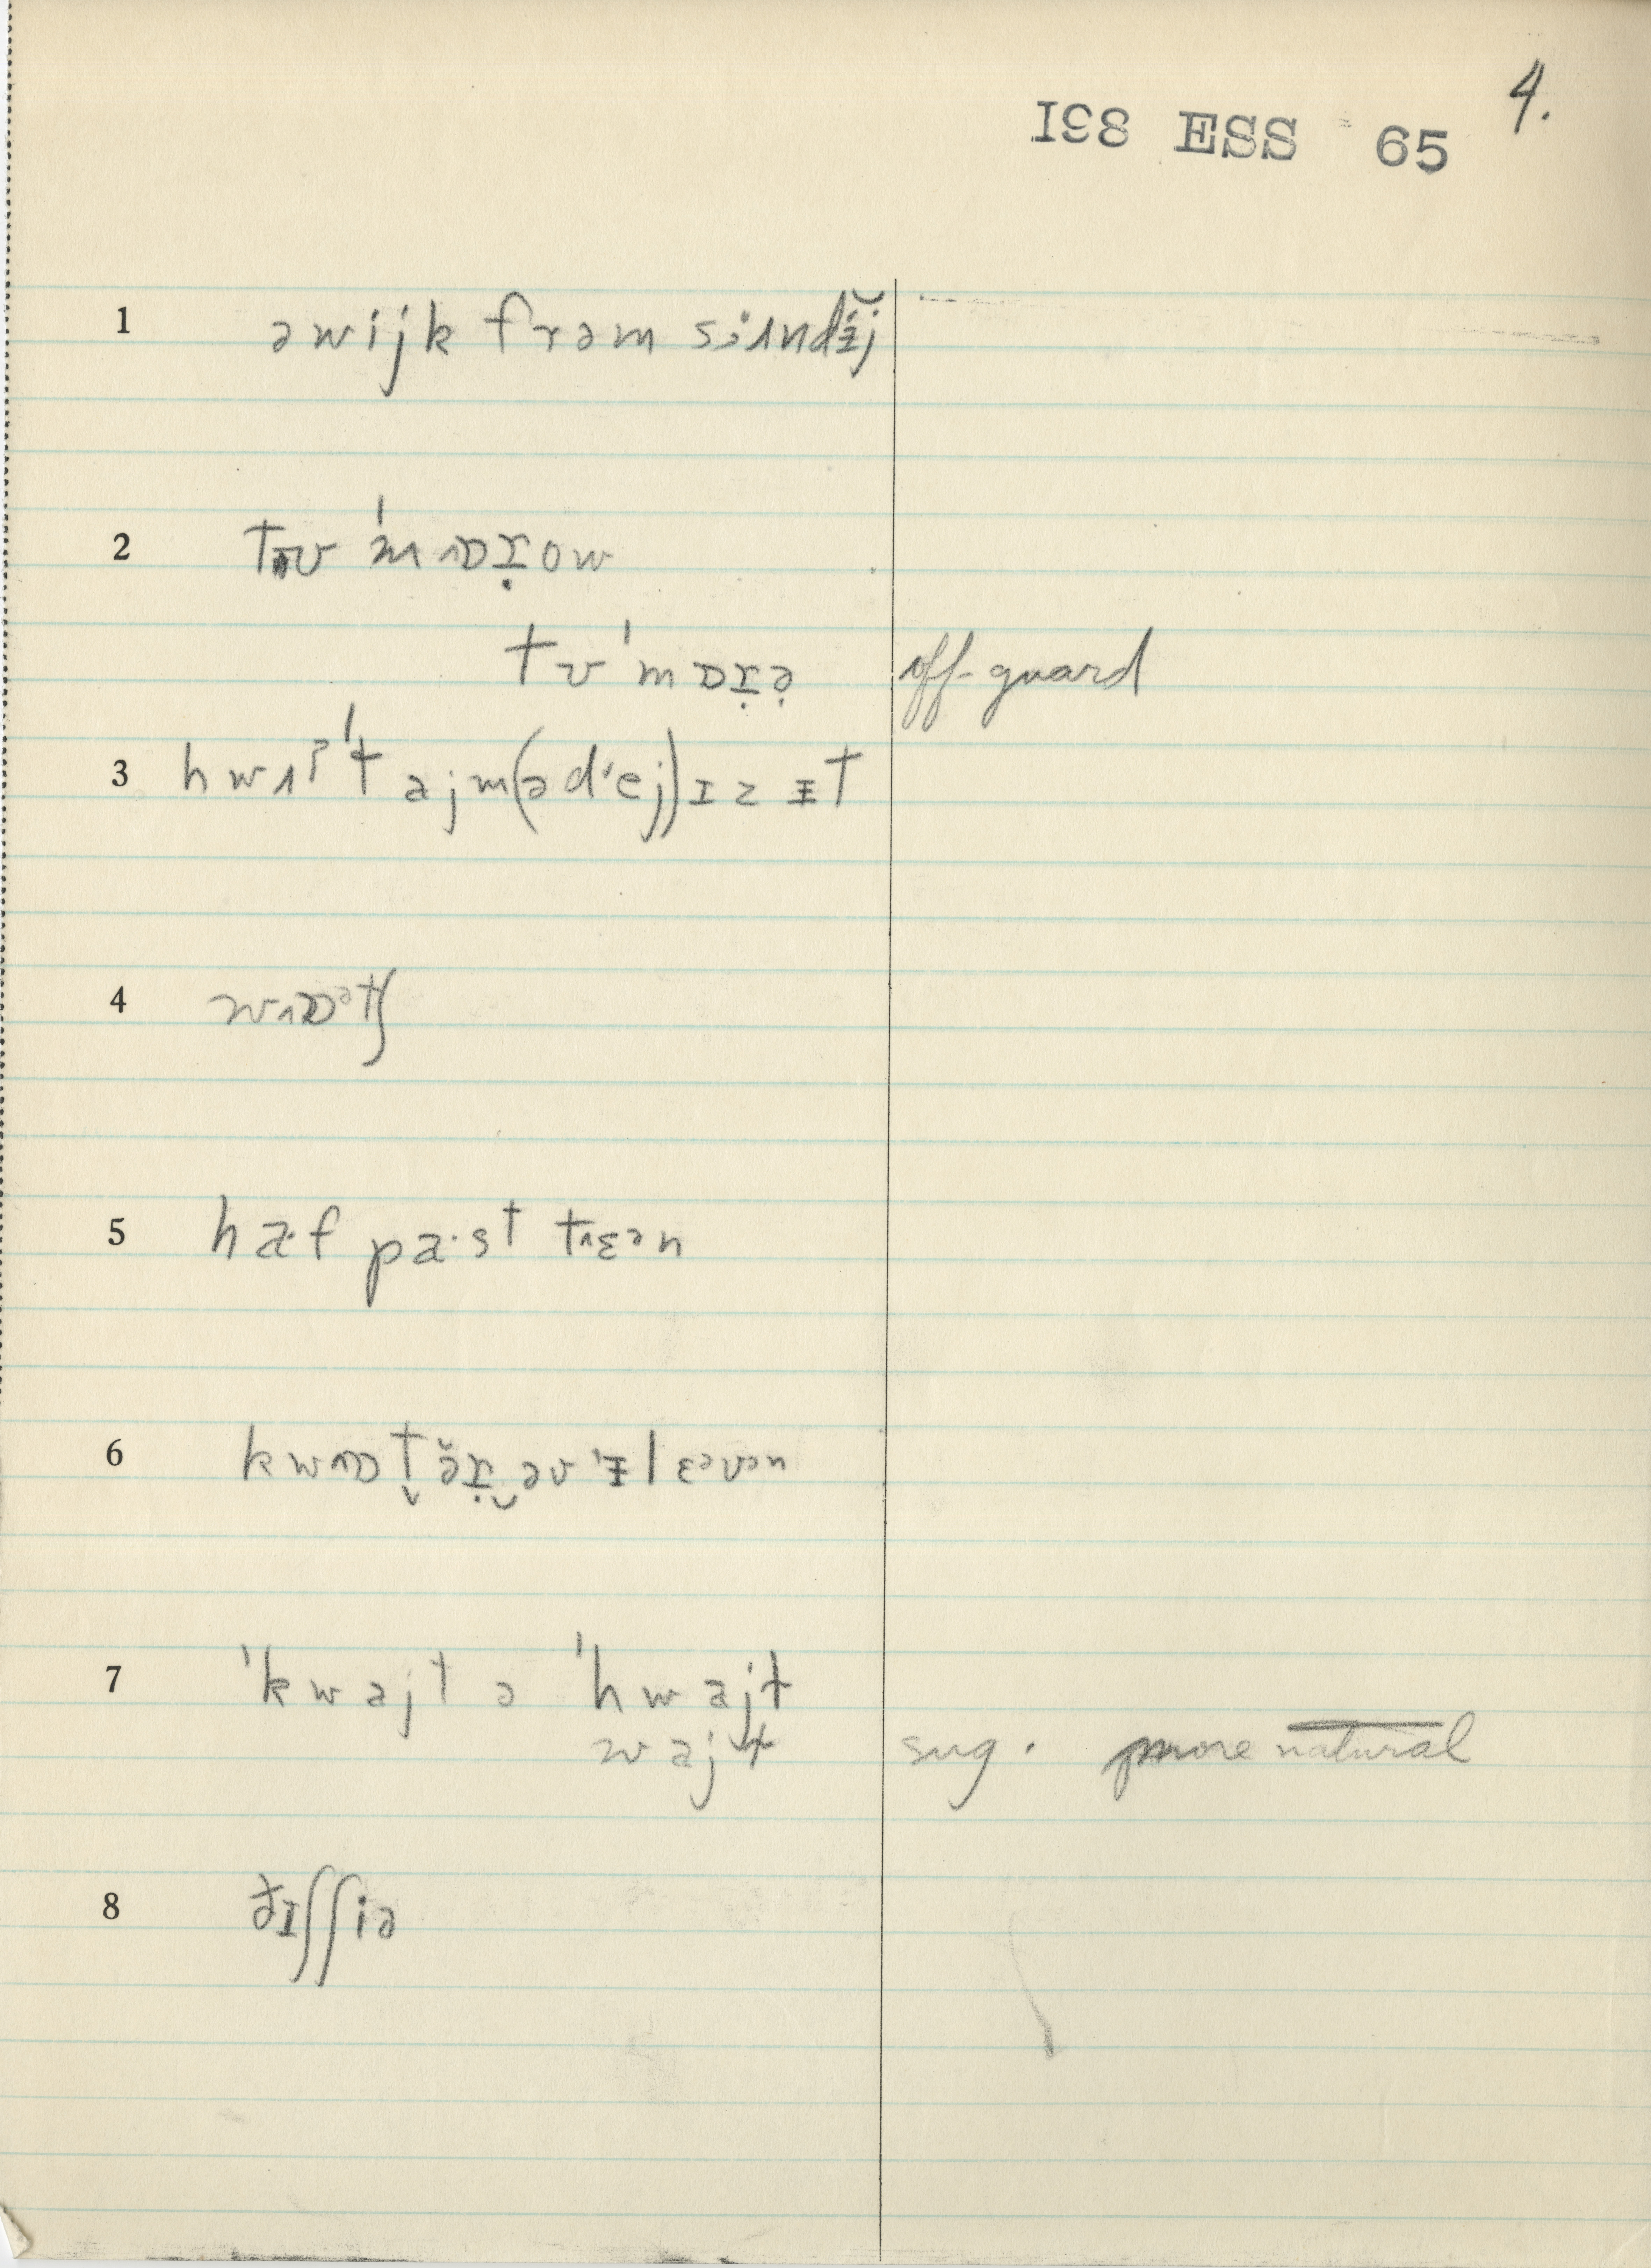 4.
IƐ8 ESS 65
1 əwijk frəm sɨʌndɨ̆j
2 tʊ 'mɒɪ̣ow
tʊ 'mɒɪ̣ə̣ off-guard
3 hwʌt ajm(ə d'ej)ɪz ɨt
4 wɒᵊtʃ
5 haf pa·st tɛᵊn
6 kwɒt̬ə̆ɪ̣‿əv 'ɨlɛᵊvᵊn
7 'kwajt ə 'hwajt
wajt sug. more natural
8 ðɪʃʃiə